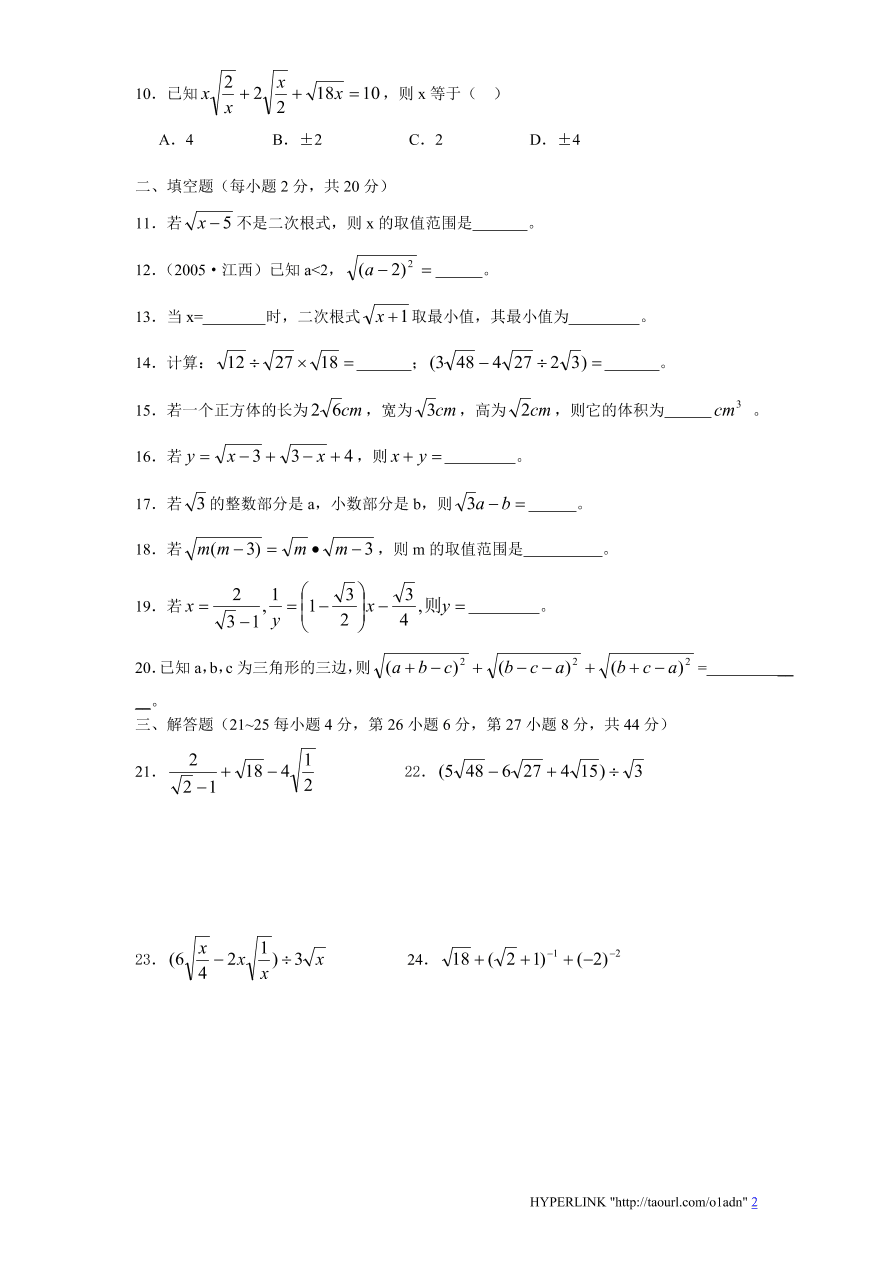 10．已知 x√(2/x) + 2√(x/2) + √(18x) = 10，则 x 等于（　）
A．4　B．±2　C．2　D．±4
二、填空题（每小题 2 分，共 20 分）
11．若 √(x − 5) 不是二次根式，则 x 的取值范围是_______。
12．（2005·江西）已知 a<2，√((a − 2)²) = ______。
13．当 x=________时，二次根式 √(x + 1) 取最小值，其最小值为_________。
14．计算：√12 ÷ √27 × √18 = _______；(3√48 − 4√27 ÷ 2√3) = _______。
15．若一个正方体的长为 2√6cm，宽为 √3cm，高为 √2cm，则它的体积为______ cm³ 。
16．若 y = √(x − 3) + √(3 − x) + 4，则 x + y = _________。
17．若 √3 的整数部分是 a，小数部分是 b，则 √3a − b = ______。
18．若 √(m(m − 3)) = √m • √(m − 3)，则 m 的取值范围是__________。
19．若 x = 2/(√3 − 1), 1/y = (1 − √3/2)x − √3/4, 则y = _________。
20．已知 a，b，c 为三角形的三边，则 √((a + b − c)²) + √((b − c − a)²) + √((b + c − a)²) =___________
__。
三、解答题（21~25 每小题 4 分，第 26 小题 6 分，第 27 小题 8 分，共 44 分）
21．2/(√2 − 1) + √18 − 4√(1/2)　22．(5√48 − 6√27 + 4√15) ÷ √3
23．(6√(x/4) − 2x√(1/x)) ÷ 3√x　24．√18 + (√2 + 1)⁻¹ + (−2)⁻²
HYPERLINK "http://taourl.com/o1adn" 2